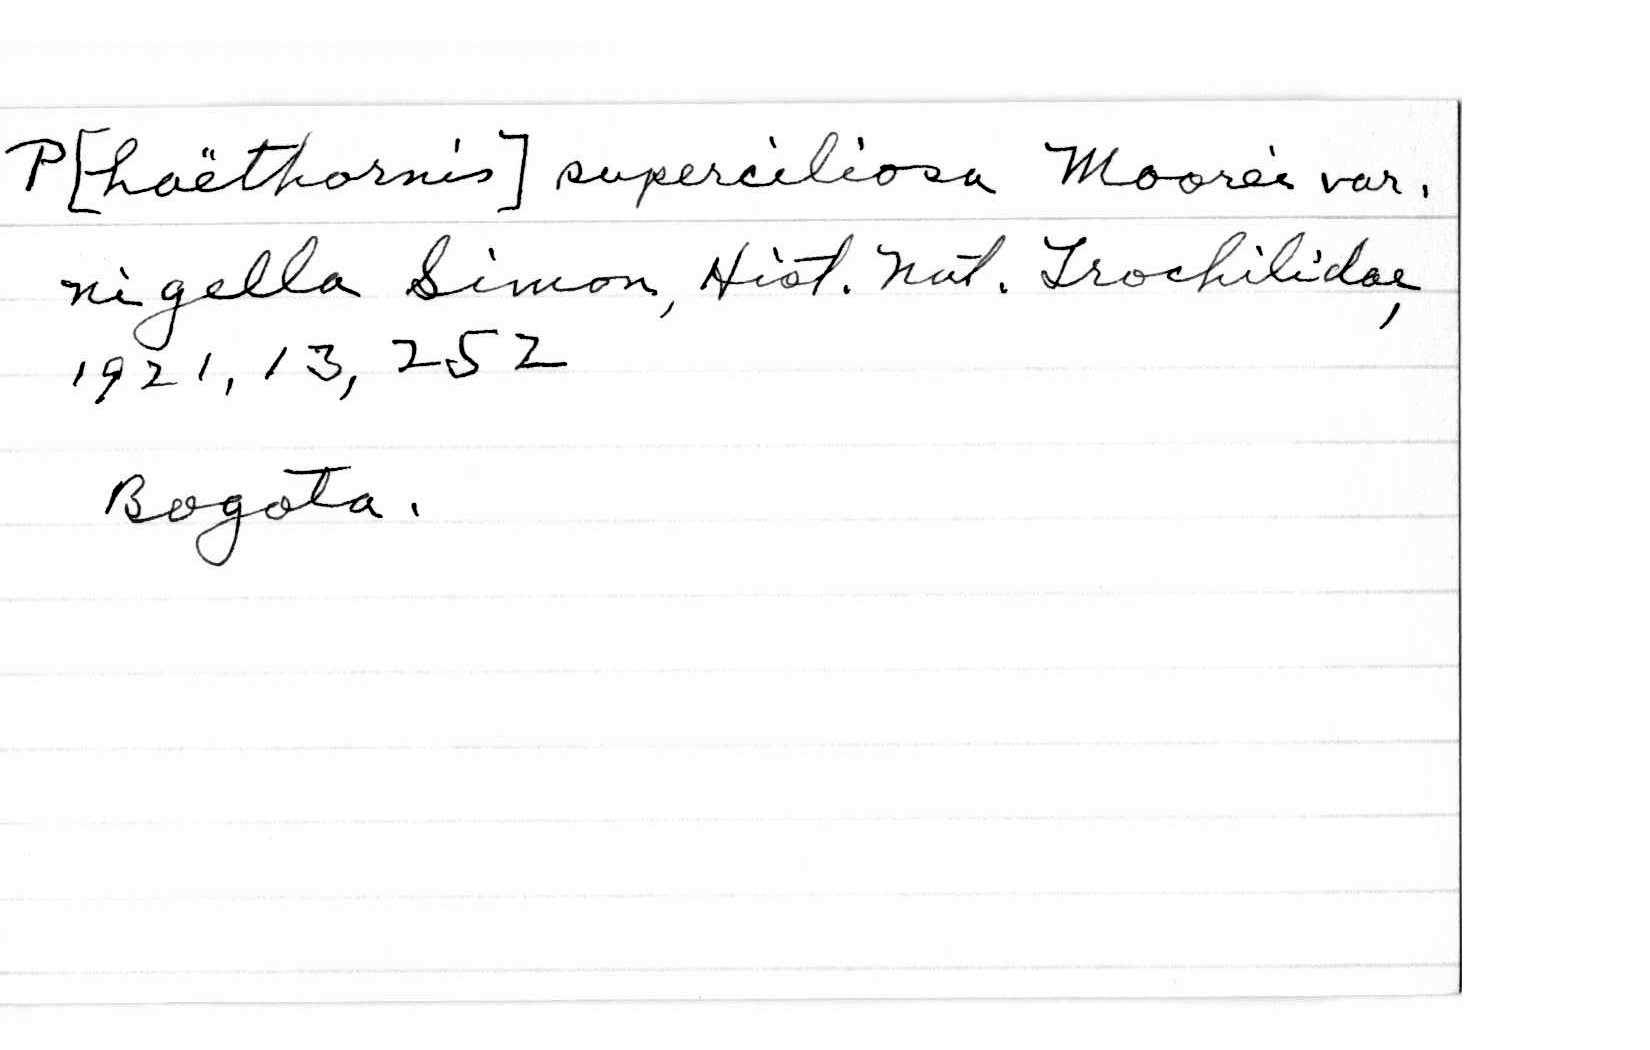 P[haëthornis] superciliosa Moorei var.
nigella Simon, Hist. Nat. Trochilidae,
1921, 13, 252
Bogota.